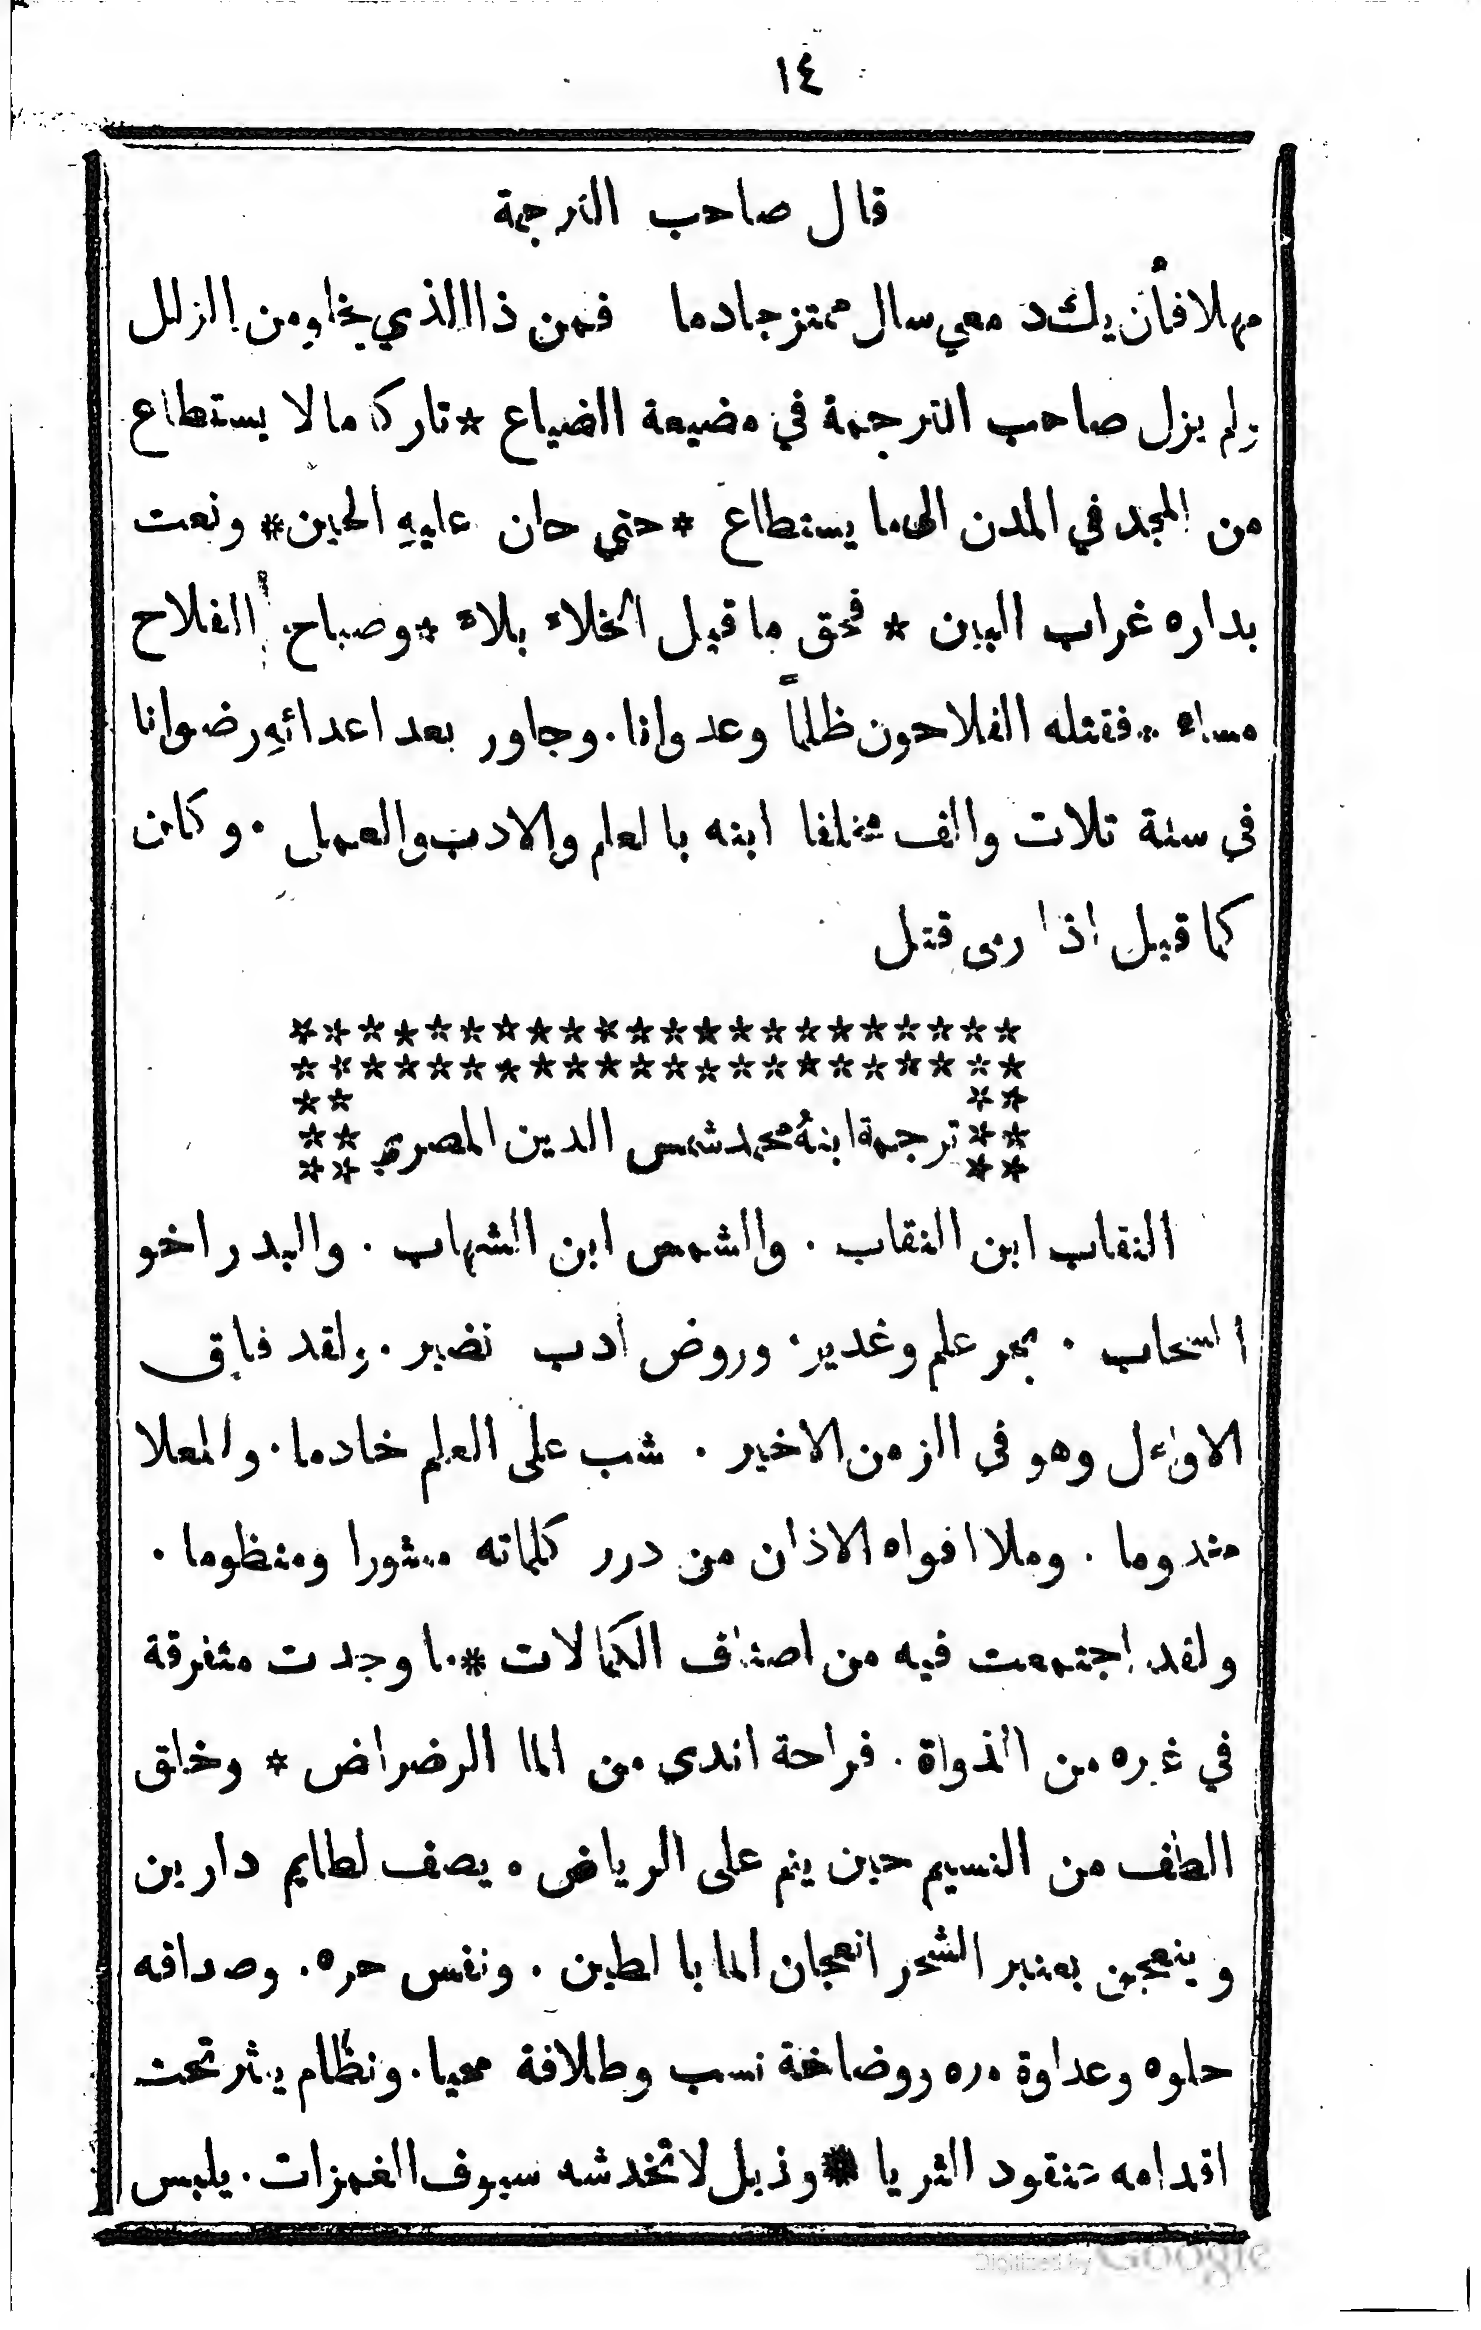 ١٤
قال صاحب الترجمة
مهلا فأن يك شد معي سال ممتزجا دما فمن ذا الذي يخلو من الزلل
ولم يزل صاحب الترجمة في مضيعة الضياع * تاركا ما لا يستطاع
من المجد في المدن الى ما يستطاع * حتي حان عليهِ الحين * ونعت
بداره غراب البين * فحق ما قيل الخلاء بلاء * وصباح الفلاح
مساء * فقتله الفلاحون ظلماً وعدوانا . وجاور بعد اعدائهِ رضوانا
في سنة ثلات والف مخلفا ابنه بالعلم والادب والعمل . وكان
كما قيل اذا رمى قتل
* * * * * * * * * * * * * * * * * * * * * *
* * * * * * * * * * * * * * * * * * * * * *
** **
** ترجمة ابنهُ محمد شمس الدين المصري **
** **
النقاب ابن النقاب . والشمس ابن الشهاب . والبدر اخو
السحاب . بحر علم وغدير . وروض ادب نضير . ولقد فاق
الاوٰءل وهو في الزمن الاخير . شب على العلم خادما . والمعلا
مثدوما . وملا افواه الاذان من درر كلماته منثورا ومنظوما .
ولقد اجتمعت فيه من اصناف الكمالات * ما وجدت متفرقة
في غيره من الذواة . فراحة اندي من الما الرضراض * وخلق
الطف من النسيم حين ينم على الرياض . يصف لطايم دارين
وينعجن بعنبر الشحر انعجان الما بالطين . ونفس حره . وصداقه
حلوه وعداوة مره ووضاخة نسب وطلاقة محيا . ونظام ينثر تحت
اقدامه عنقود الثريا * وذيل لا تخدشه سيوف الغمزات . يلبس
Digitized by Google